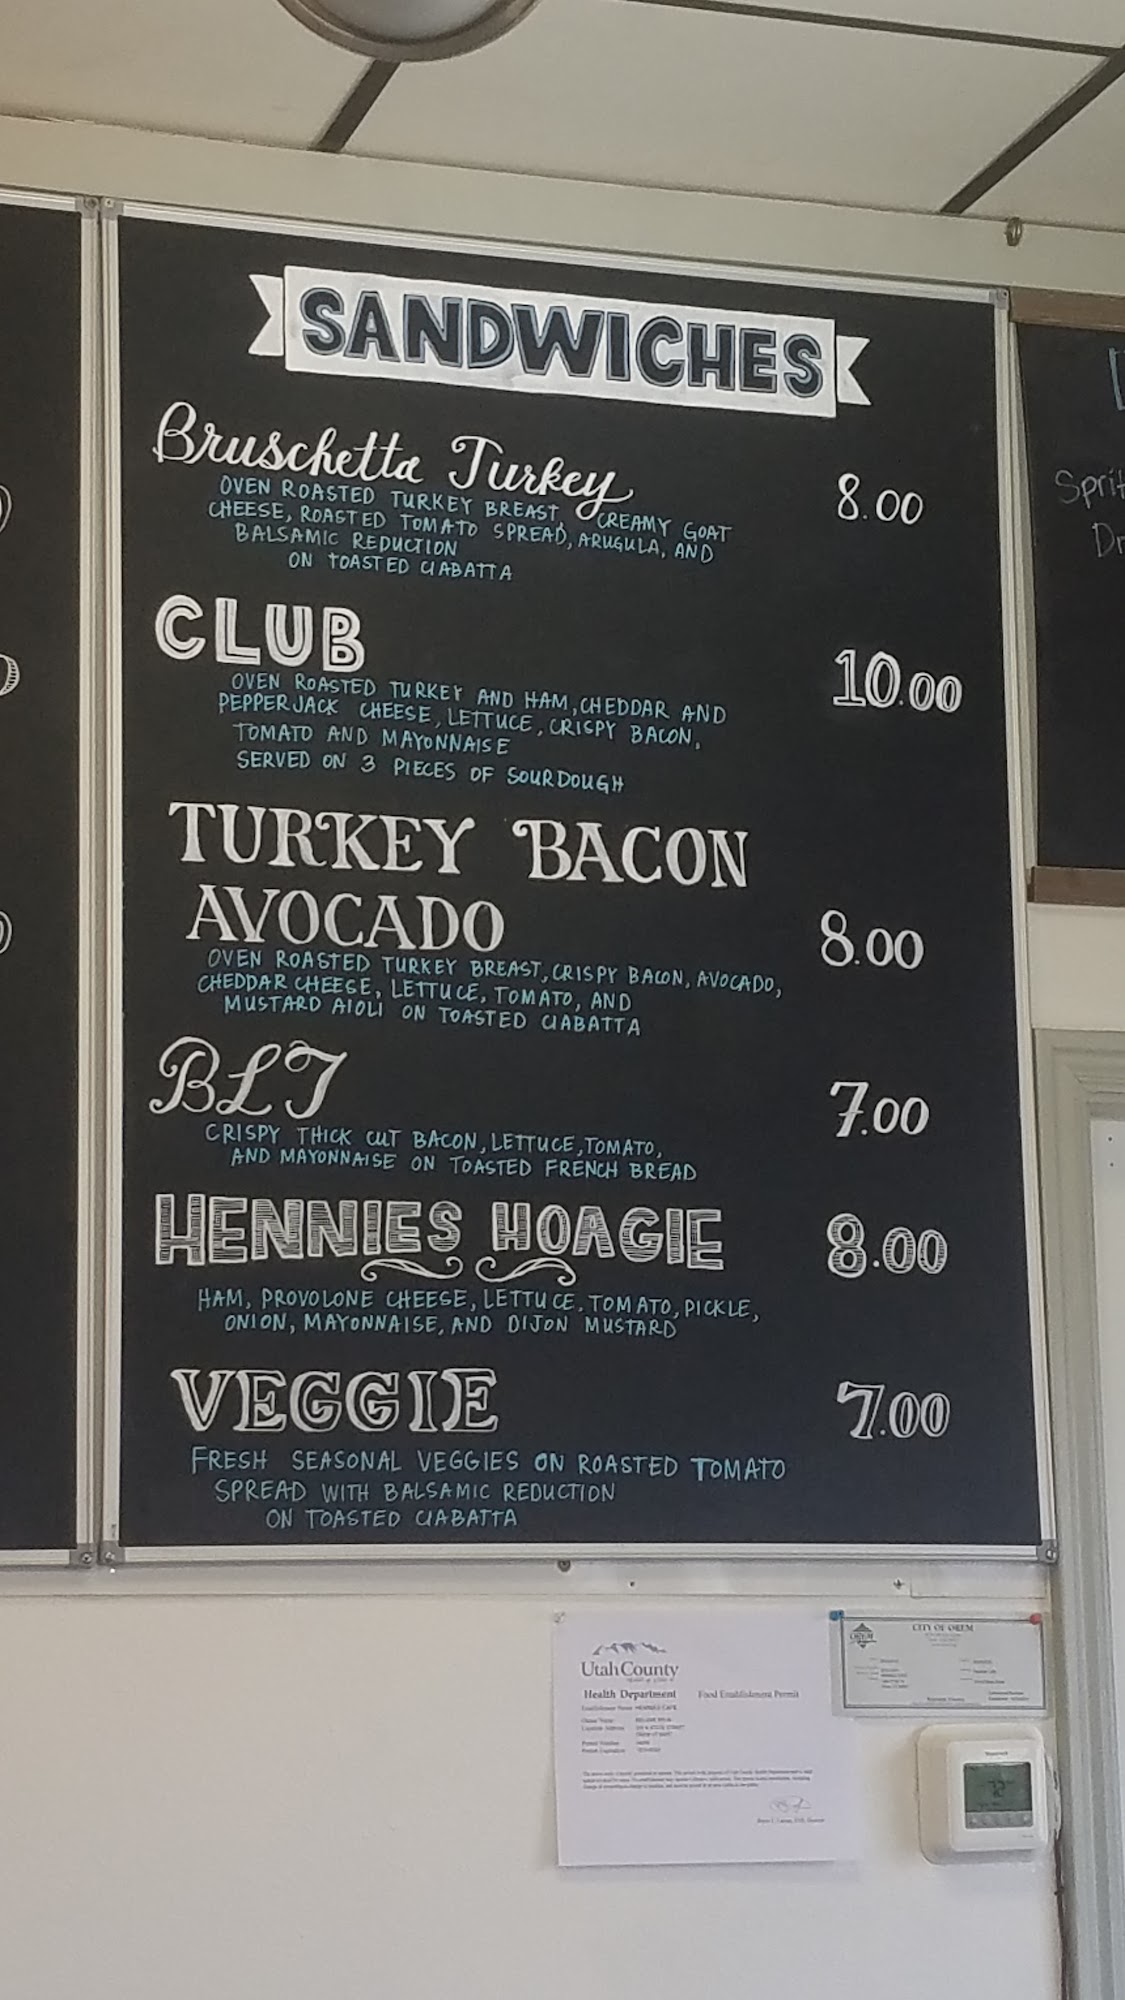 SANDWICHES
Bruschetta Turkey 8.00
OVEN ROASTED TURKEY BREAST, CREAMY GOAT
CHEESE, ROASTED TOMATO SPREAD, ARUGULA, AND
BALSAMIC REDUCTION
ON TOASTED CIABATTA
CLUB 10.00
OVEN ROASTED TURKEY AND HAM, CHEDDAR AND
PEPPERJACK CHEESE, LETTUCE, CRISPY BACON,
TOMATO AND MAYONNAISE
SERVED ON 3 PIECES OF SOURDOUGH
TURKEY BACON
AVOCADO 8.00
OVEN ROASTED TURKEY BREAST, CRISPY BACON, AVOCADO,
CHEDDAR CHEESE, LETTUCE, TOMATO, AND
MUSTARD AIOLI ON TOASTED CIABATTA
BLT 7.00
CRISPY THICK CUT BACON, LETTUCE, TOMATO,
AND MAYONNAISE ON TOASTED FRENCH BREAD
HENNIES HOAGIE 8.00
HAM, PROVOLONE CHEESE, LETTUCE, TOMATO, PICKLE,
ONION, MAYONNAISE, AND DIJON MUSTARD
VEGGIE 7.00
FRESH SEASONAL VEGGIES ON ROASTED TOMATO
SPREAD WITH BALSAMIC REDUCTION
ON TOASTED CIABATTA
Sprit
Dr
Utah County
Health Department Food Establishment Permit
CITY OF OREM
72